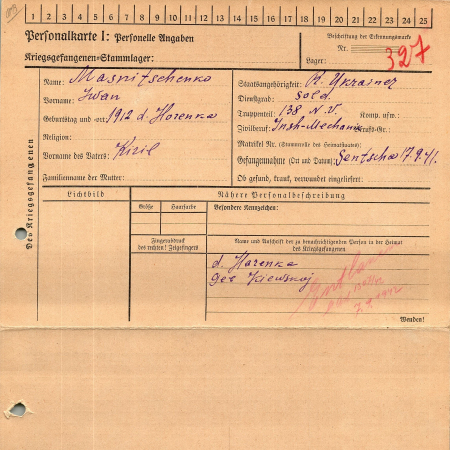 1 2 3 4 5 6 7 8 9 10 11 12 13 14 15 16 17 18 19 20 21 22 23 24 25
Personalkarte I: Personelle Angaben
Kriegsgefangenen-Stammlager:
Beschriftung der Erkennungsmarke
Nr. 327
Lager:
Des Kriegsgefangenen
Name: Masnitschenko
Vorname: Iwan
Geburtstag und -ort 1912 d. Horenka
Religion:
Vorname des Vaters: Kiril
Familienname der Mutter:
Staatsangehörigkeit: R. Ukrainer
Dienstgrad: Sold.
Truppenteil: 138 N.V. Komp. usw.:
Zivilberuf: Insh-Mechanik
Matrikel Nr. (Stammrolle des Heimatstaates):
Gefangennahme (Ort und Datum): Sentscha 17.9.41.
Ob gesund, krank, verwundet eingeliefert:
Lichtbild
Nähere Personalbeschreibung
Größe Haarfarbe Besondere Kennzeichen:
Fingerabdruck
des rechten! Zeigefingers
Name und Anschrift der zu benachrichtigenden Person in der Heimat
des Kriegsgefangenen
d. Horenka
geb Kiewskoj
Entlassen
7.9.1942
Wenden!